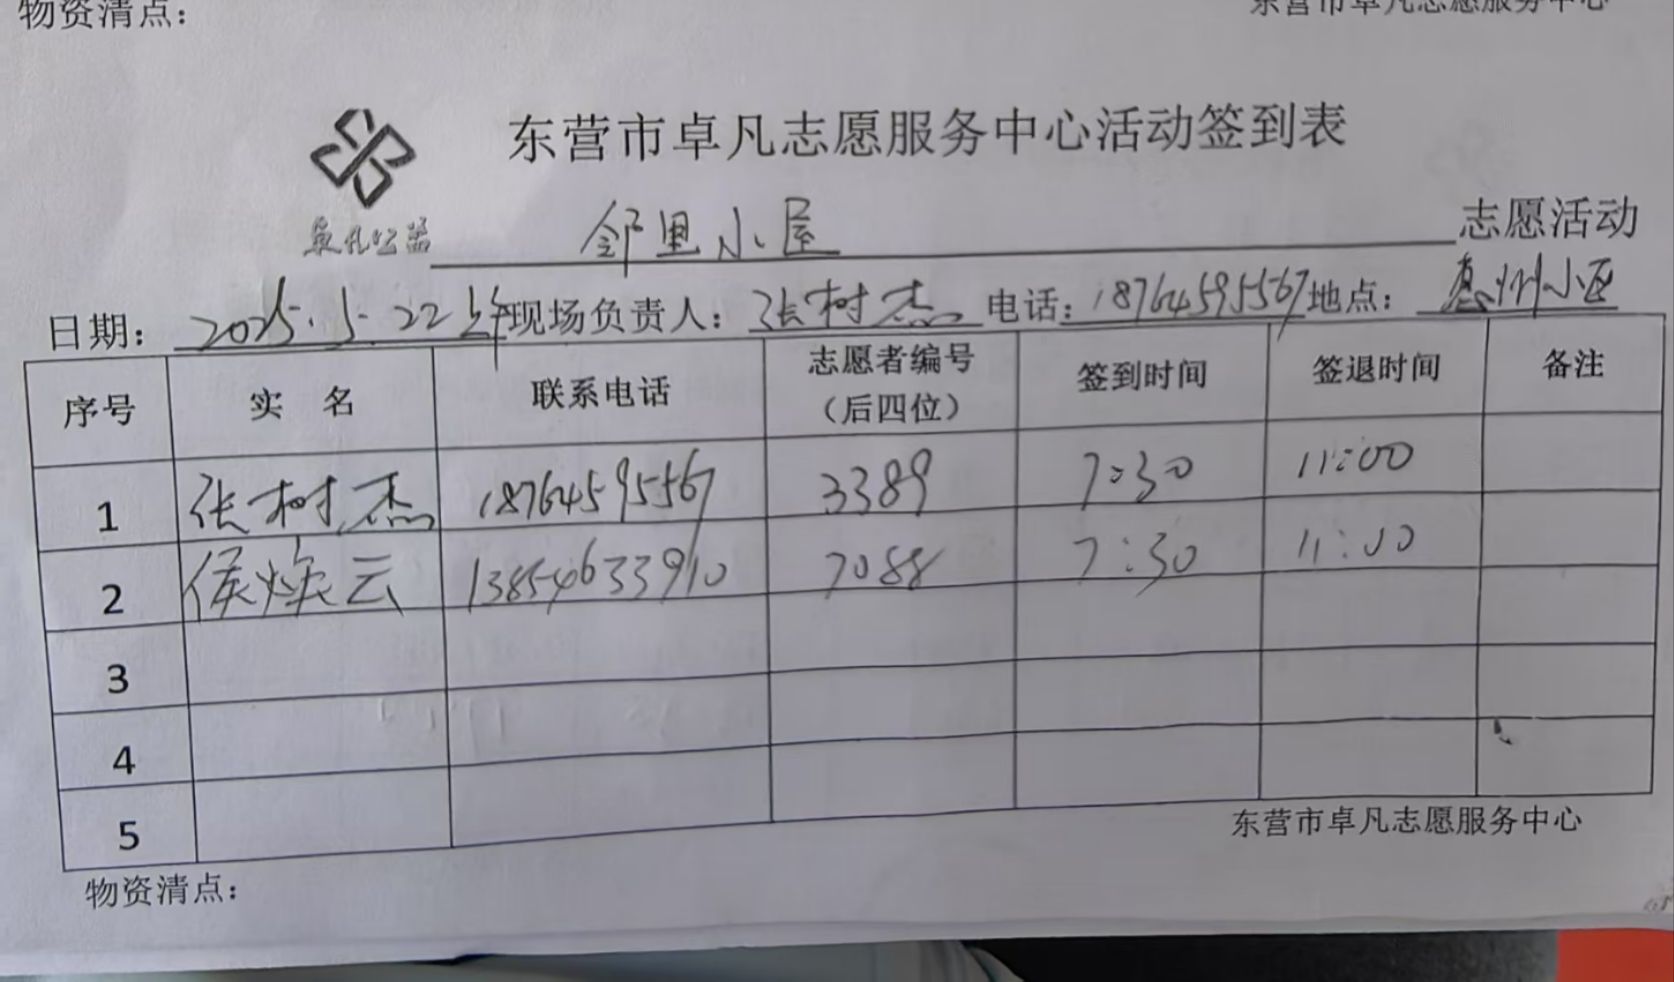 物资清点：
东营市卓凡志愿服务中心
东营市卓凡志愿服务中心活动签到表
卓凡公益
邻里小屋 志愿活动
日期：2025.5.22上午 现场负责人：张树杰 电话：18764595567 地点：惠州小区
序号 实 名 联系电话 志愿者编号（后四位） 签到时间 签退时间 备注
1 张树杰 18764595567 3389 7:30 11:00
2 侯焕云 13854633910 7088 7:30 11:00
3
4
5
东营市卓凡志愿服务中心
物资清点：